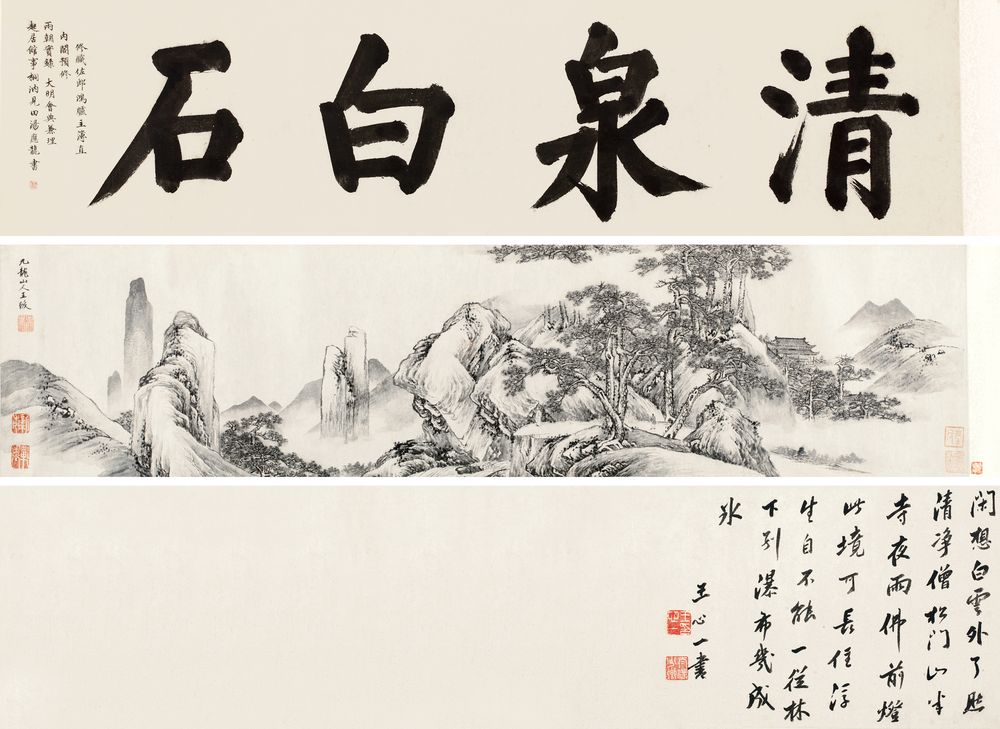 清泉白石
修職佐郎鴻臚主簿直
內閣預修
兩朝實錄 大明會典兼理
起居館事桐汭見田湯應龍書
九龍山人王紱
閑想白雲外了然
清淨僧松門山半
寺夜雨佛前燈
此境可長住浮
生自不能一從林
下別瀑布幾成
冰
王心一書